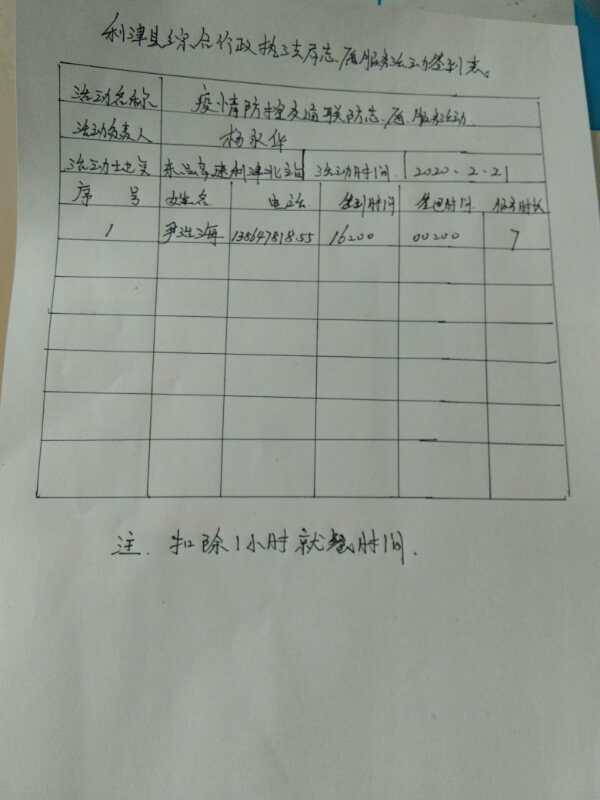 利津县综合行政执法支队志愿服务活动签到表。
活动名称 疫情防控交通联防志愿服务活动
活动负责人 杨永华
活动地点 东吕高速利津北站 活动时间 2020.2.21
序 号 姓名 电话 签到时间 签退时间 服务时长
1 尹班海 13864781855 16:00 00:00 7
注. 扣除1小时就餐时间.